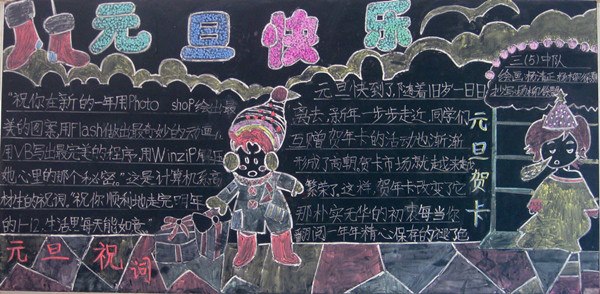 元旦快乐
"祝你在新的一年用Photo shop绘出最
美的图案,用Flash做出最奇妙的动画,
用VB写出最完美的程序,用WinZip
她心里的那个秘密。"这是计算机系高
材生的祝词。"祝你顺利地走完
的1-12,生活里每天能如意。"
元旦祝词
元旦快到了,随着旧岁一日日
离去,新年一步步走近,同学们
互赠贺年卡的活动也渐渐
形成了高潮。贺卡市场就越来越
繁荣了。这样,贺年卡改变了它
那朴实无华的初衷。每当你
翻阅一年年精心保存的
元旦贺卡
三(5)中队